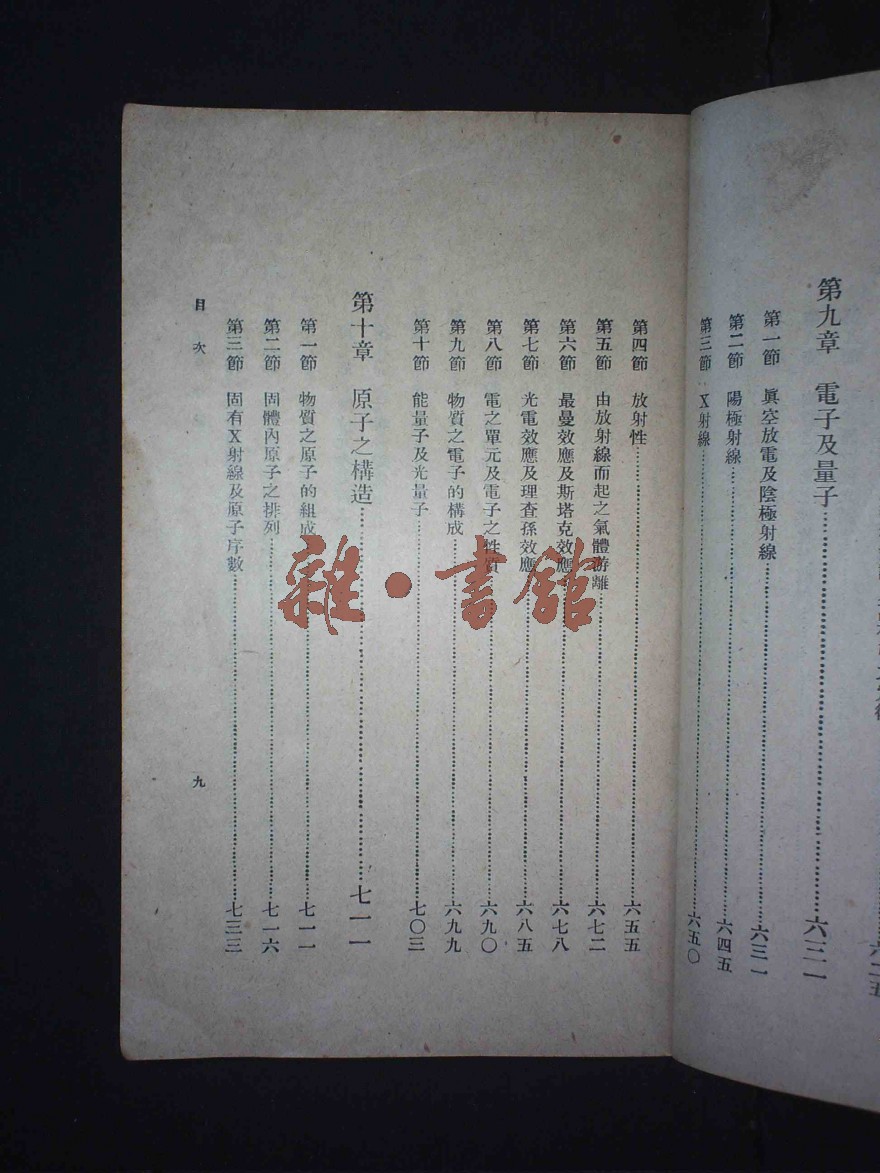 六二五
第九章　電子及量子……六三一
第一節　眞空放電及陰極射線……六三一
第二節　陽極射線……六四五
第三節　X射線……六五〇
第四節　放射性……六五五
第五節　由放射線而起之氣體游離……六七二
第六節　最曼效應及斯塔克效應……六七八
第七節　光電效應及理査孫效應……六八五
第八節　電之單元及電子之性質……六九〇
第九節　物質之電子的構成……六九九
第十節　能量子及光量子……七〇三
第十章　原子之構造……七一一
第一節　物質之原子的組成……七一一
第二節　固體內原子之排列……七一六
第三節　固有X射線及原子序數……七三三
目次
九
雜·書館